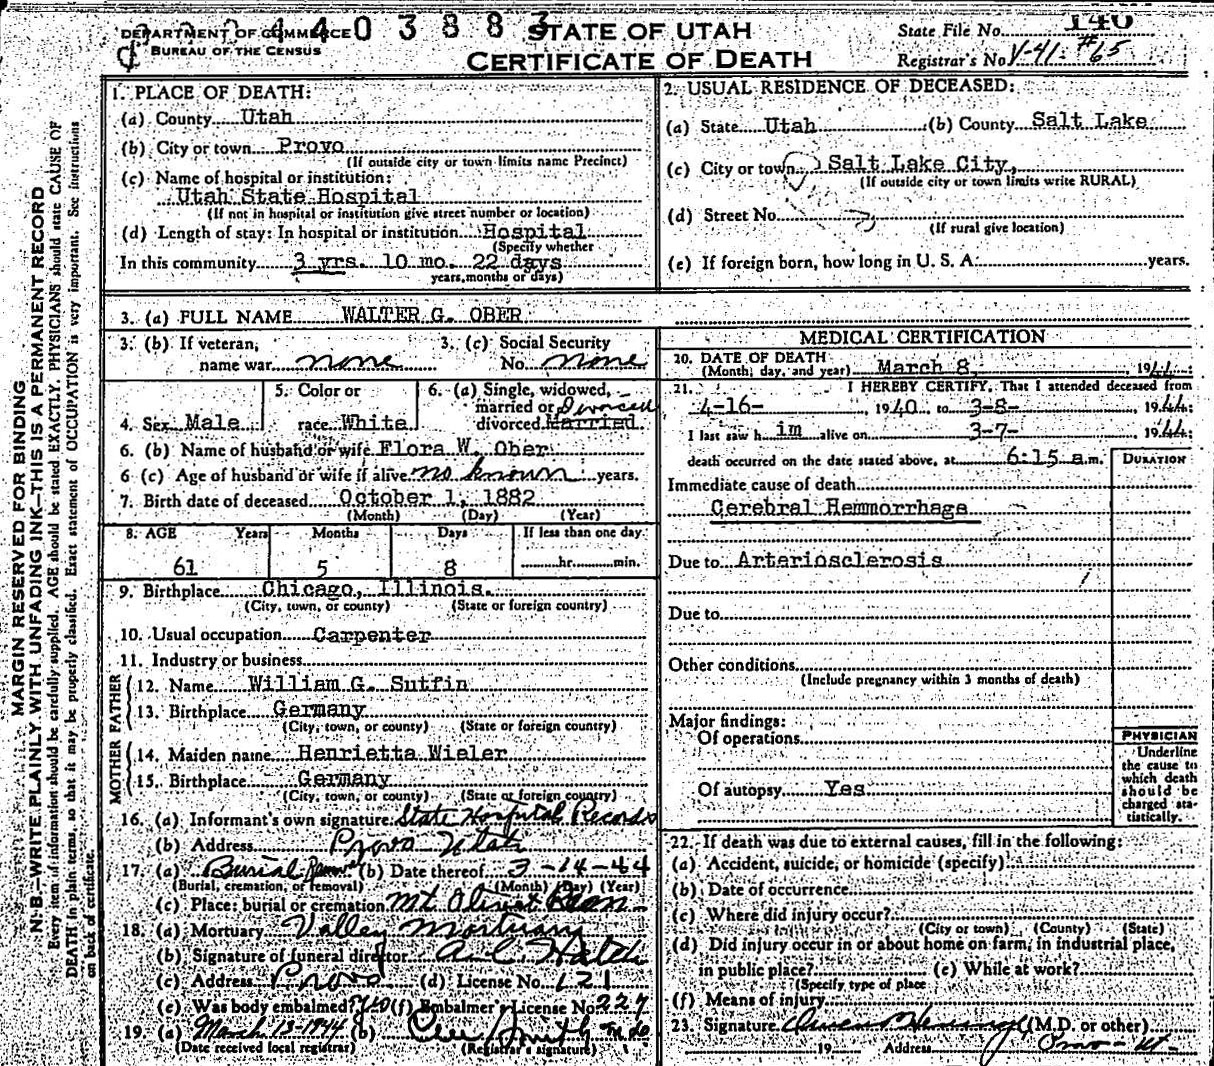 2 2 4 4 0 3 8 8 3
DEPARTMENT OF COMMERCE
BUREAU OF THE CENSUS
STATE OF UTAH
CERTIFICATE OF DEATH
State File No. 140
Registrar's No. V-41- #65
MARGIN RESERVED FOR BINDING
N. B.—WRITE PLAINLY WITH UNFADING INK—THIS IS A PERMANENT RECORD
Every item of information should be carefully supplied. AGE should be stated EXACTLY. PHYSICIANS should state CAUSE OF
DEATH in plain terms, so that it may be properly classified. Exact statement of OCCUPATION is very important. See instructions
on back of certificate.
1. PLACE OF DEATH:
(a) County Utah
(b) City or town Provo
(If outside city or town limits name Precinct)
(c) Name of hospital or institution:
Utah State Hospital
(If not in hospital or institution give street number or location)
(d) Length of stay: In hospital or institution Hospital
(Specify whether
In this community 3 yrs. 10 mo. 22 days
years, months or days)
2. USUAL RESIDENCE OF DECEASED:
(a) State Utah (b) County Salt Lake
(c) City or town Salt Lake City,
(If outside city or town limits write RURAL)
(d) Street No.
(If rural give location)
(e) If foreign born, how long in U. S. A. years.
3. (a) FULL NAME WALTER G. OBER
3. (b) If veteran, 3. (c) Social Security
name war none No. none
5. Color or 6. (a) Single, widowed,
married or Divorced
4. Sex Male race White divorced Married
6. (b) Name of husband or wife Flora W. Ober
6 (c) Age of husband or wife if alive no known years.
7. Birth date of deceased October 1, 1882
(Month) (Day) (Year)
8. AGE Years Months Days If less than one day
61 5 8 hr. min.
9. Birthplace Chicago, Illinois.
(City, town, or county) (State or foreign country)
10. Usual occupation Carpenter
11. Industry or business
FATHER
12. Name William G. Sutfin
13. Birthplace Germany
(City, town, or county) (State or foreign country)
MOTHER
14. Maiden name Henrietta Wieler
15. Birthplace Germany
(City, town, or county) (State or foreign country)
16. (a) Informant's own signature State Hospital Records
(b) Address Provo Utah
17. (a) Burial (b) Date thereof 3-14-44
(Burial, cremation, or removal) (Month) (Day) (Year)
(c) Place: burial or cremation Mt Olivet
18. (a) Mortuary Valley Mortuary
(b) Signature of funeral director Hatch
(c) Address Provo (d) License No. 121
(e) Was body embalmed? (f) Embalmer's License No. 227
19. (a) March 13-1944 (b)
(Date received local registrar) (Registrar's signature)
MEDICAL CERTIFICATION
20. DATE OF DEATH
(Month, day, and year) March 8, 1944
21. I HEREBY CERTIFY, That I attended deceased from
4-16- , 1940, to 3-8- , 1944:
I last saw h im alive on 3-7- , 1944:
death occurred on the date stated above, at 6:15 a.m.
DURATION
Immediate cause of death
Cerebral Hemmorrhage
Due to Arteriosclerosis
Due to
Other conditions
(Include pregnancy within 3 months of death)
Major findings:
Of operations
Of autopsy Yes
PHYSICIAN
Underline
the cause to
which death
should be
charged sta-
tistically.
22. If death was due to external causes, fill in the following:
(a) Accident, suicide, or homicide (specify)
(b) Date of occurrence
(c) Where did injury occur?
(City or town) (County) (State)
(d) Did injury occur in or about home on farm, in industrial place,
in public place? (e) While at work?
(Specify type of place
(f) Means of injury
23. Signature (M.D. or other)
19 Address Provo - Ut -